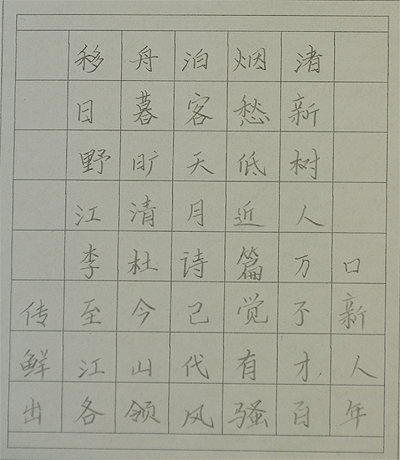 移舟泊烟渚
日暮客愁新
野旷天低树
江清月近人
李杜诗篇万口
传至今已觉不新
鲜江山代有才人
出各领风骚百年